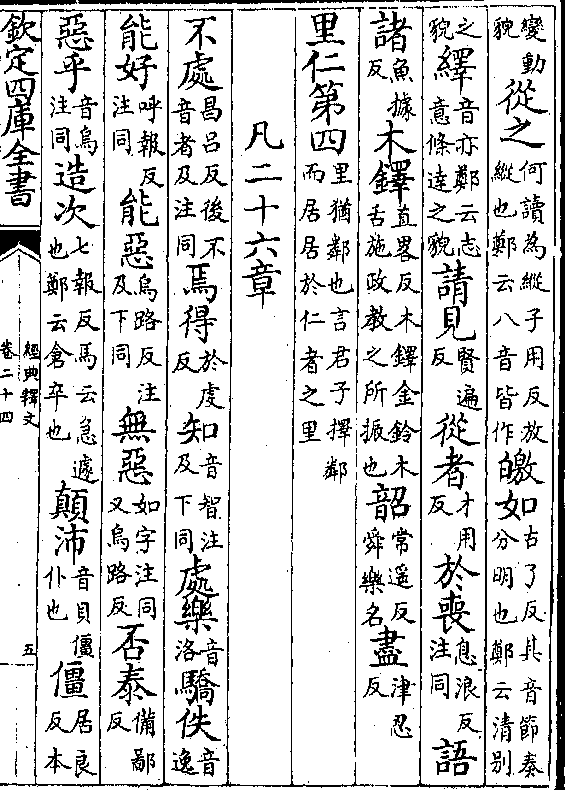 變動貌從之何讀為縱子用反放縱也鄭云八音皆作皦如古了反其音節奏分明也鄭云清別
之貌繹音亦鄭云志意條達之貌請見賢遍反從者才用反於喪息浪反注同語
諸魚據反木鐸直畧反木鐸金鈴木舌施政教之所振也韶常遥反舜樂名盡津忍反
里仁第四里猶鄰也言君子擇鄰而居居於仁者之里
凡二十六章
不處昌呂反後不音者及注同焉得於虔反知音智注及下同處樂音洛驕佚音逸
能好呼報反注同能惡烏路反注及下同無惡如字注同又烏路反否泰備鄙反
惡乎音烏注同造次七報反馬云急遽也鄭云倉卒也顛沛音貝僵仆也僵居良反本
欽定四庫全書
經典釋文
卷二十四
五